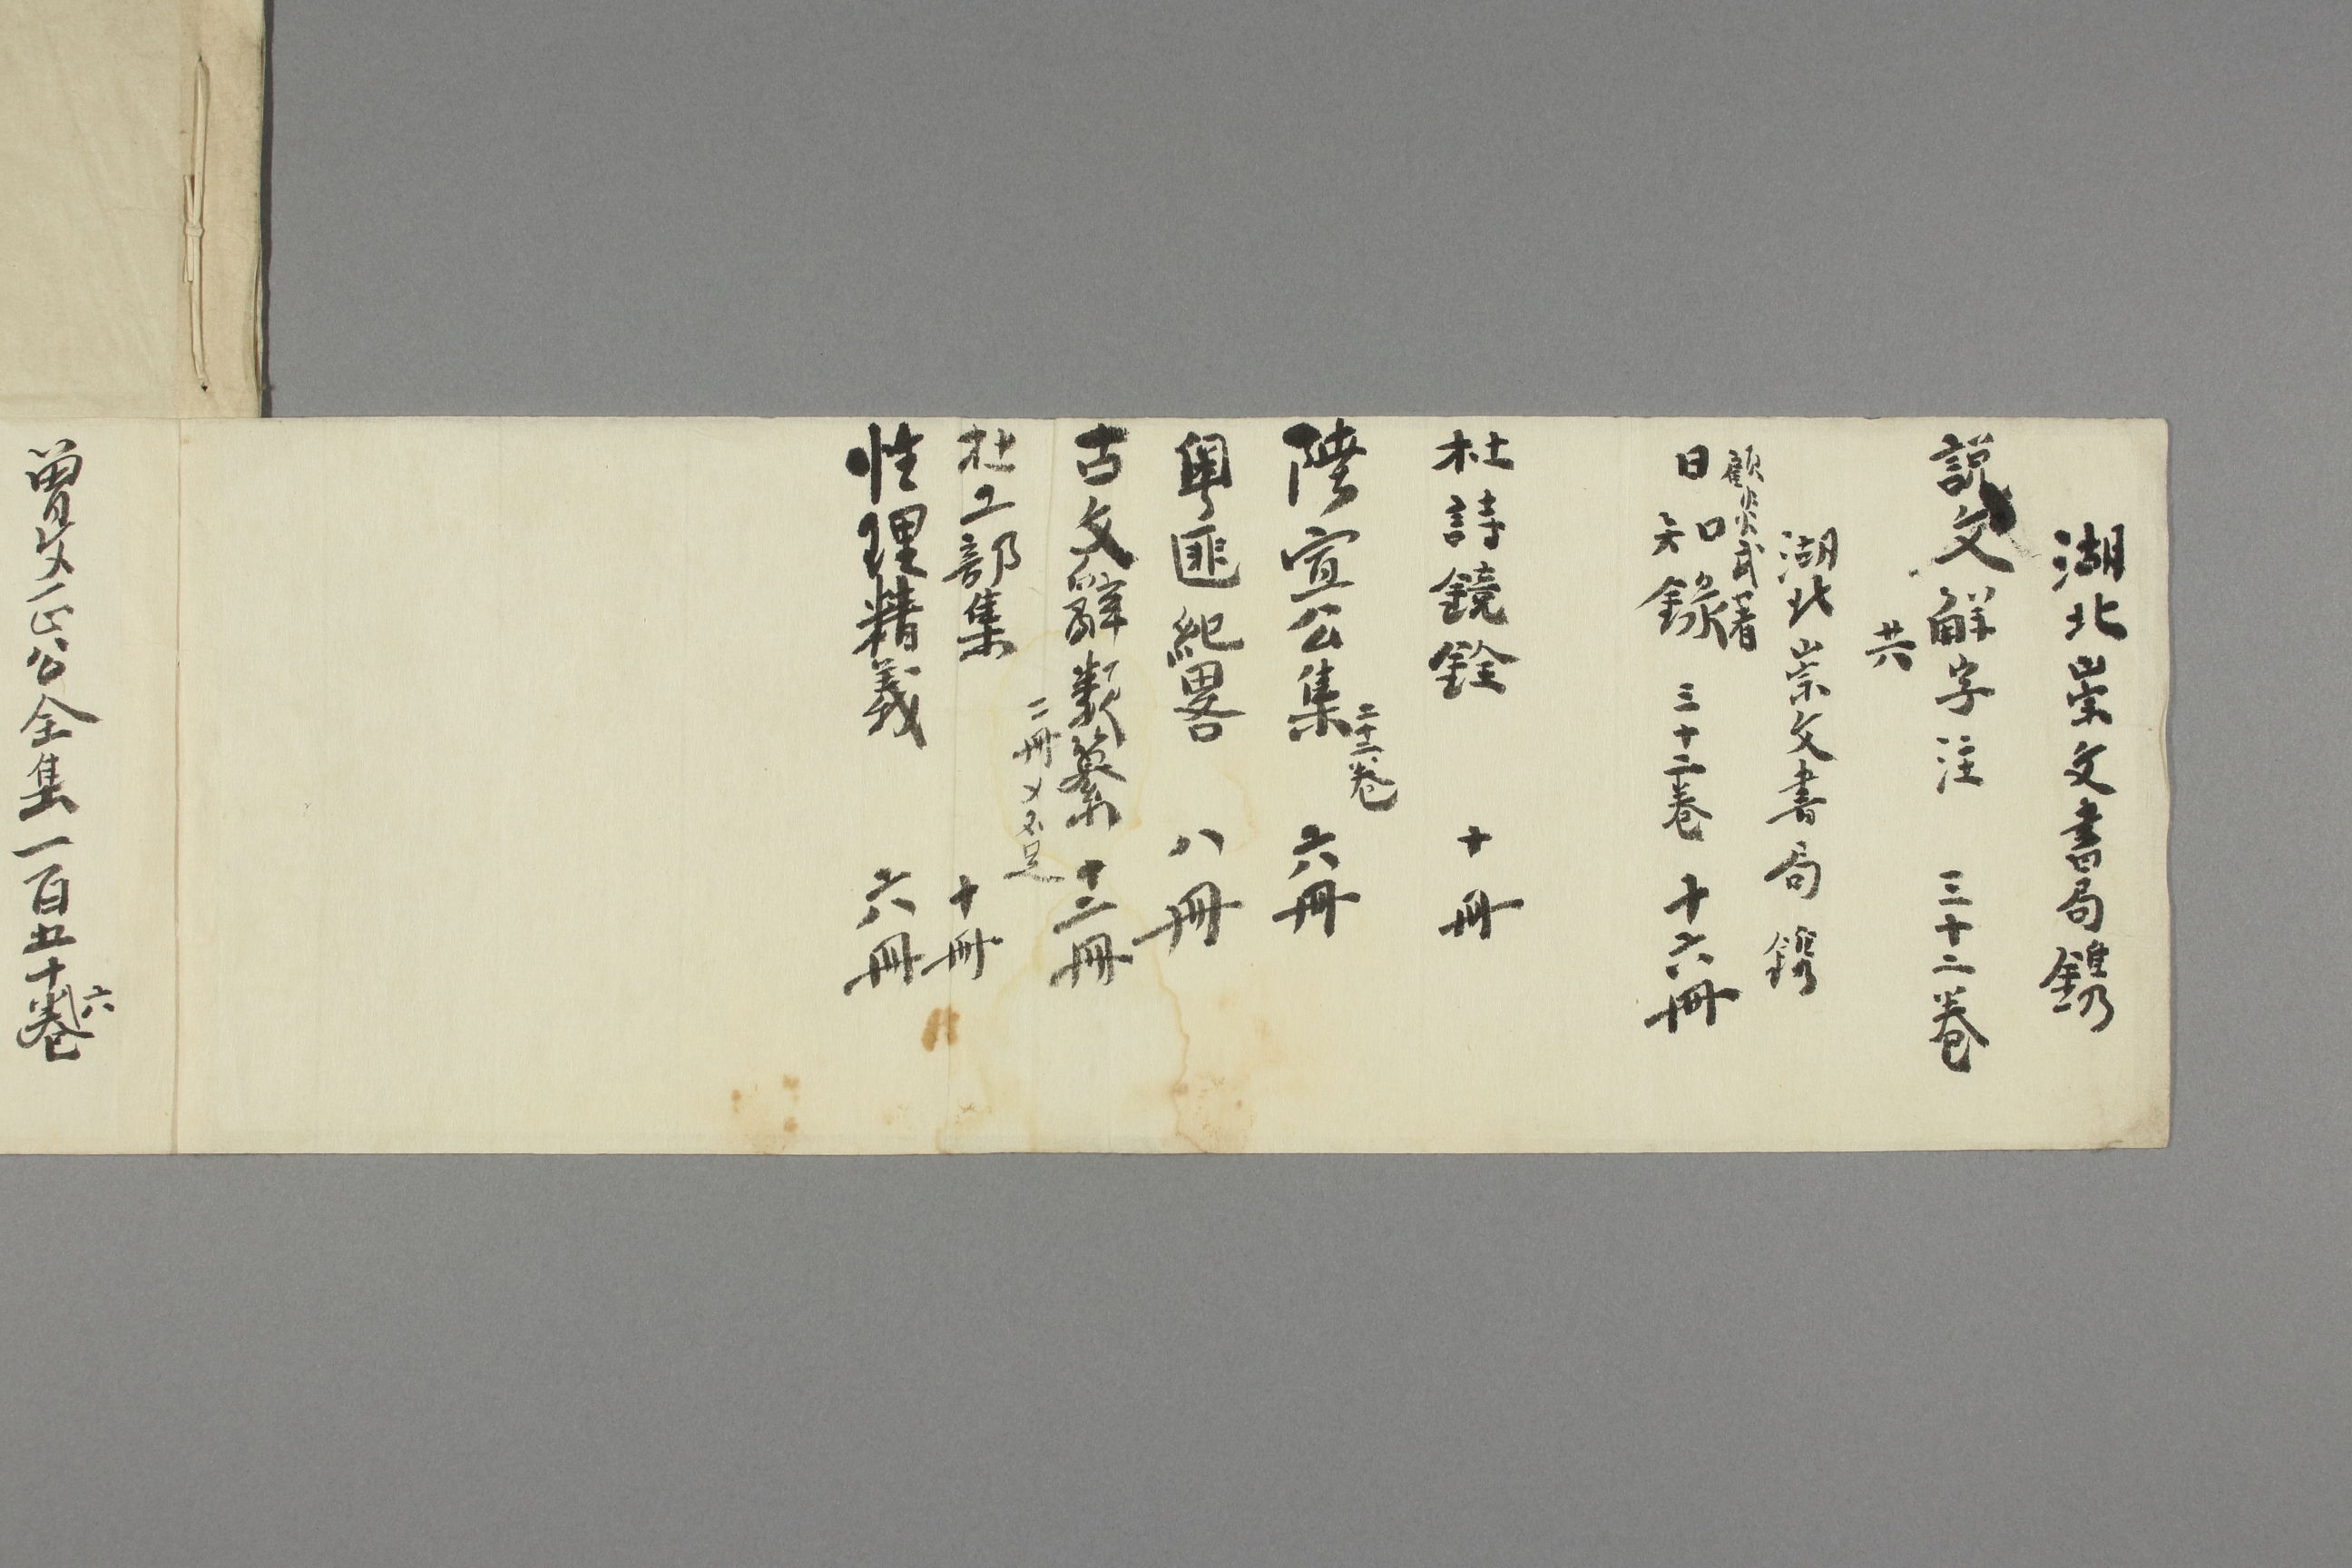 湖北崇文書局鐫
説文解字注　三十二卷
共六
湖北崇文書局鐫
顧炎武著
日知錄　三十二卷　十六冊
杜詩鏡銓　十冊
二十二卷
陸宣公集　六冊
粵匪紀畧　八冊
古文辭類纂　十二冊
二冊乂不足
杜工部集　十冊
性理精義　六冊
曾文正公全集一百五十六卷